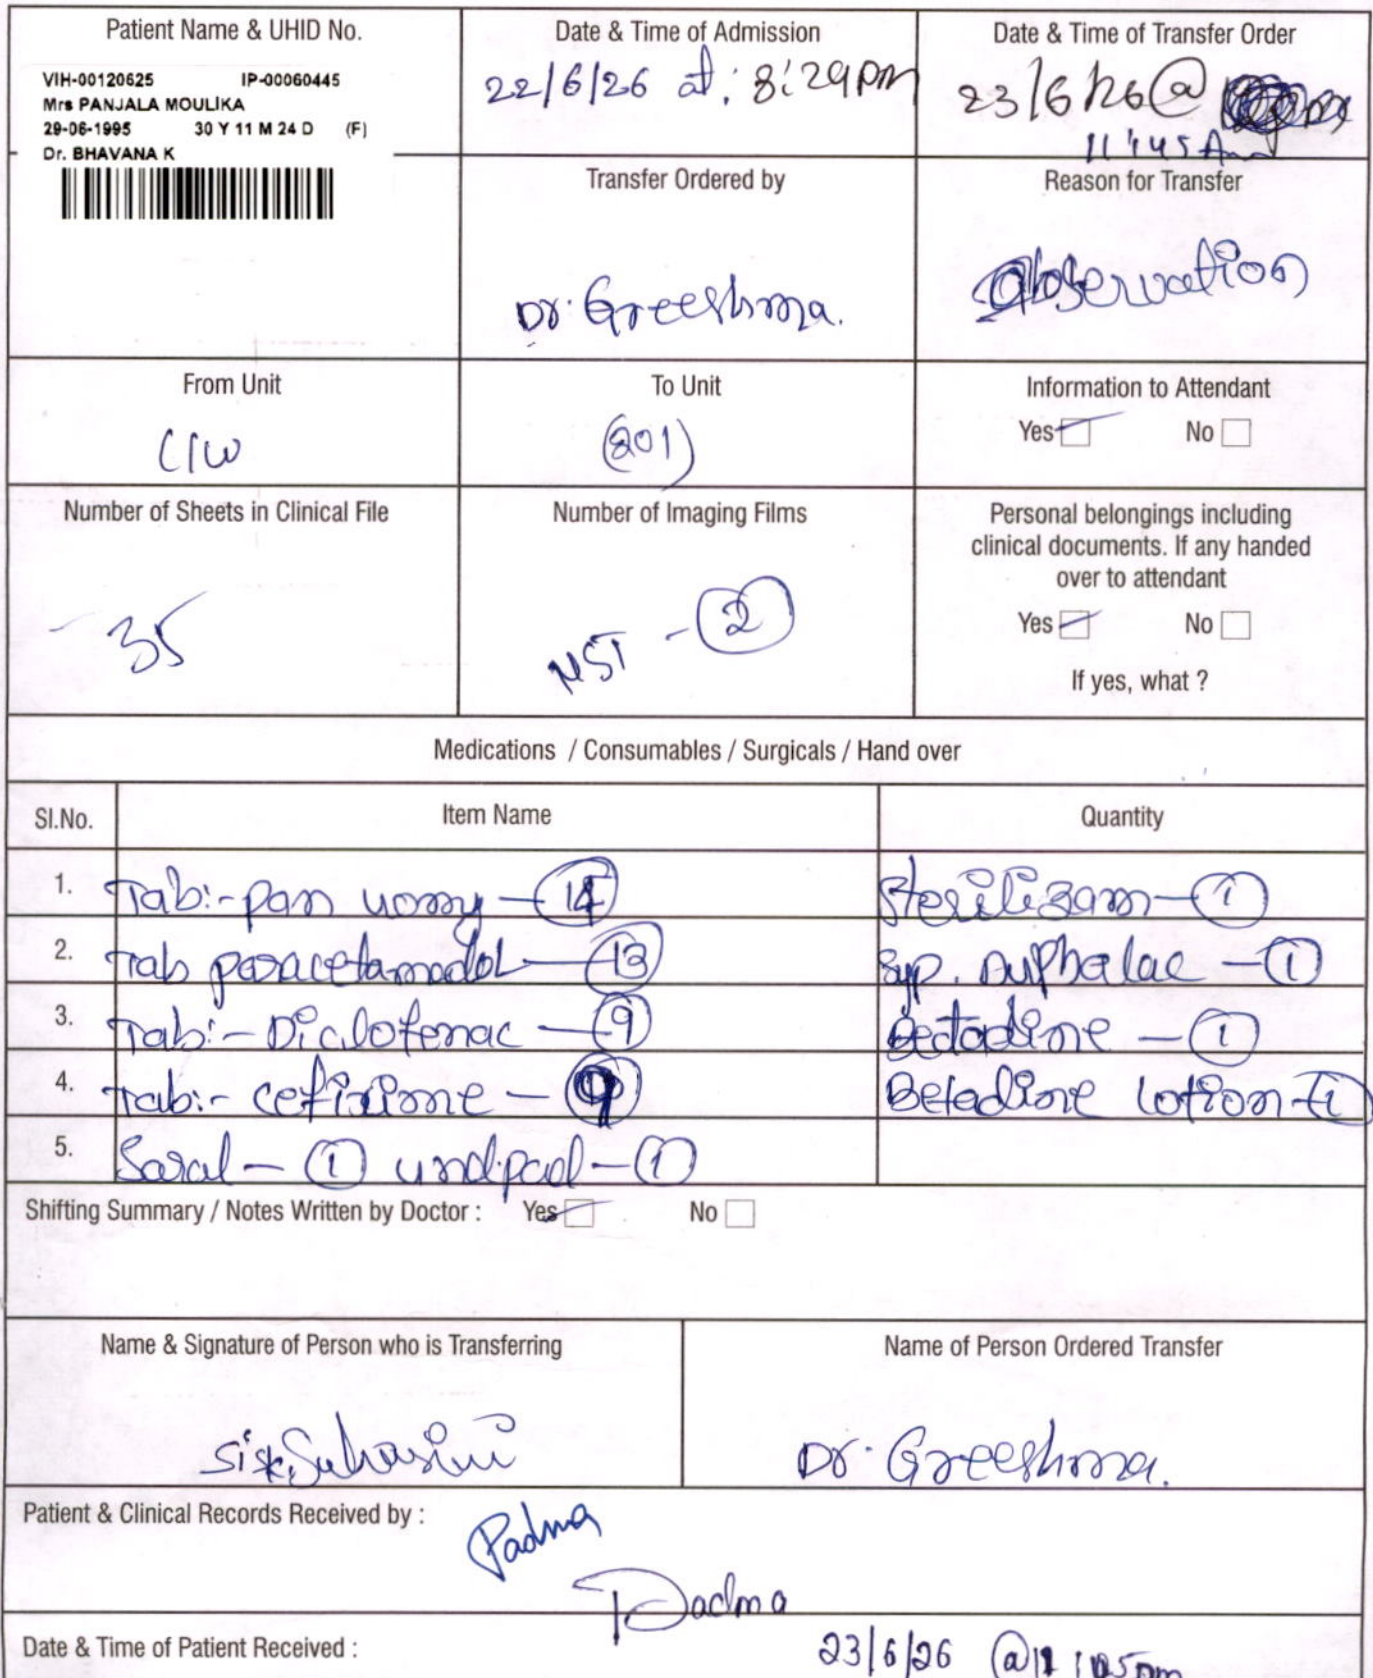 Patient Name & UHID No.
VIH-00120625 IP-00060445
Mrs PANJALA MOULIKA
29-06-1995 30 Y 11 M 24 D (F)
Dr. BHAVANA K
Date & Time of Admission
22/6/26 at: 8:29pm
Date & Time of Transfer Order
23/6/26 @
11:45 Am
Transfer Ordered by
Dr. Greeshma.
Reason for Transfer
Observation
From Unit
To Unit
(201)
Information to Attendant
Yes No
Number of Sheets in Clinical File
- 35
Number of Imaging Films
NST - 2
Personal belongings including
clinical documents. If any handed
over to attendant
Yes No
If yes, what ?
Medications / Consumables / Surgicals / Hand over
Sl.No. Item Name Quantity
1. Tab:- pan - 14 - 1
2. Tab paracetamadol - 13 Syp. Duphalac - 1
3. Tab:- Diclofenac - 9 - 1
4. Tab:- cefixime - 9 Betadine lotion - 1
5. - 1 undpad - 1
Shifting Summary / Notes Written by Doctor : Yes No
Name & Signature of Person who is Transferring
Sis. Suhasini
Name of Person Ordered Transfer
Dr. Greeshma.
Patient & Clinical Records Received by :
Padma
Padma
Date & Time of Patient Received :
23/6/26